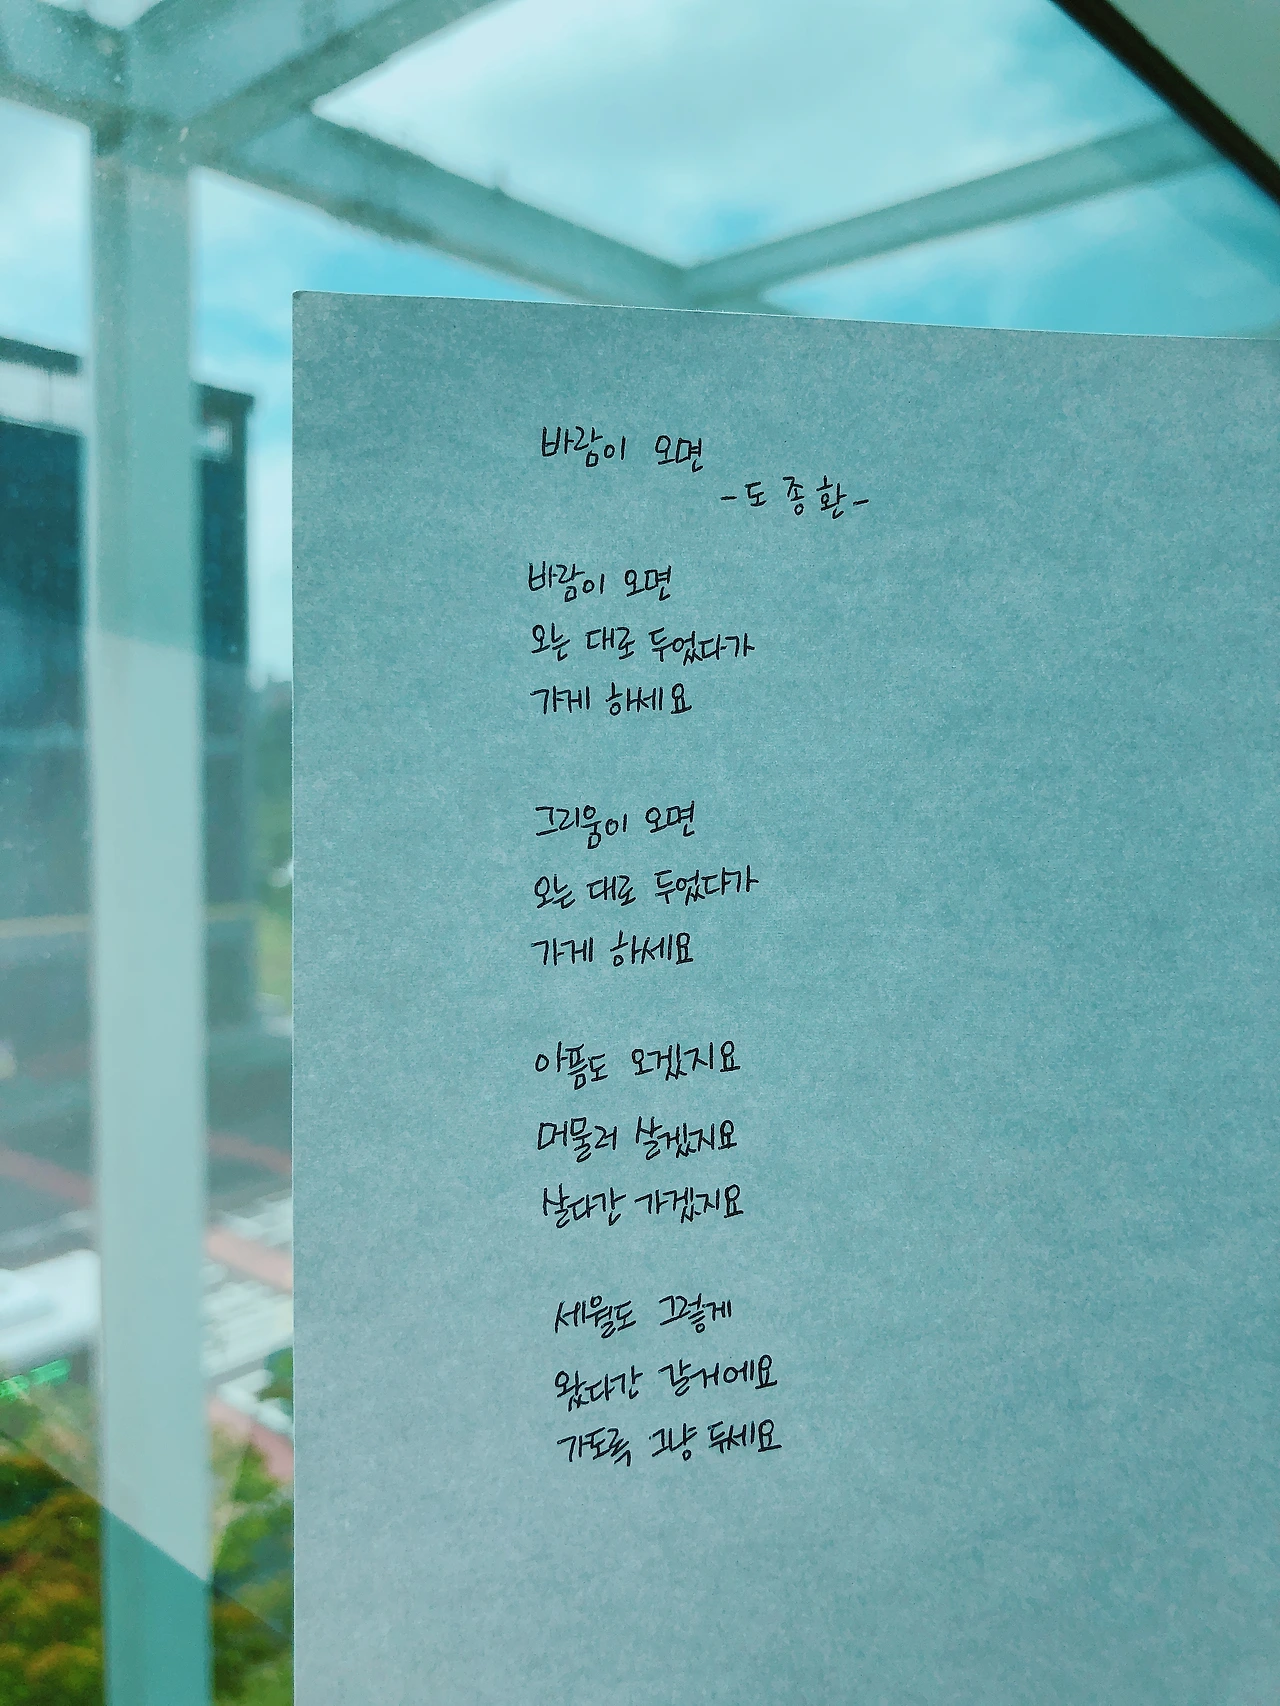 바람이 오면
-도종환-
바람이 오면
오는 대로 두었다가
가게 하세요
그리움이 오면
오는 대로 두었다가
가게 하세요
아픔도 오겠지요
머물러 살겠지요
살다간 가겠지요
세월도 그렇게
왔다간 갈거에요
가도록 그냥 두세요